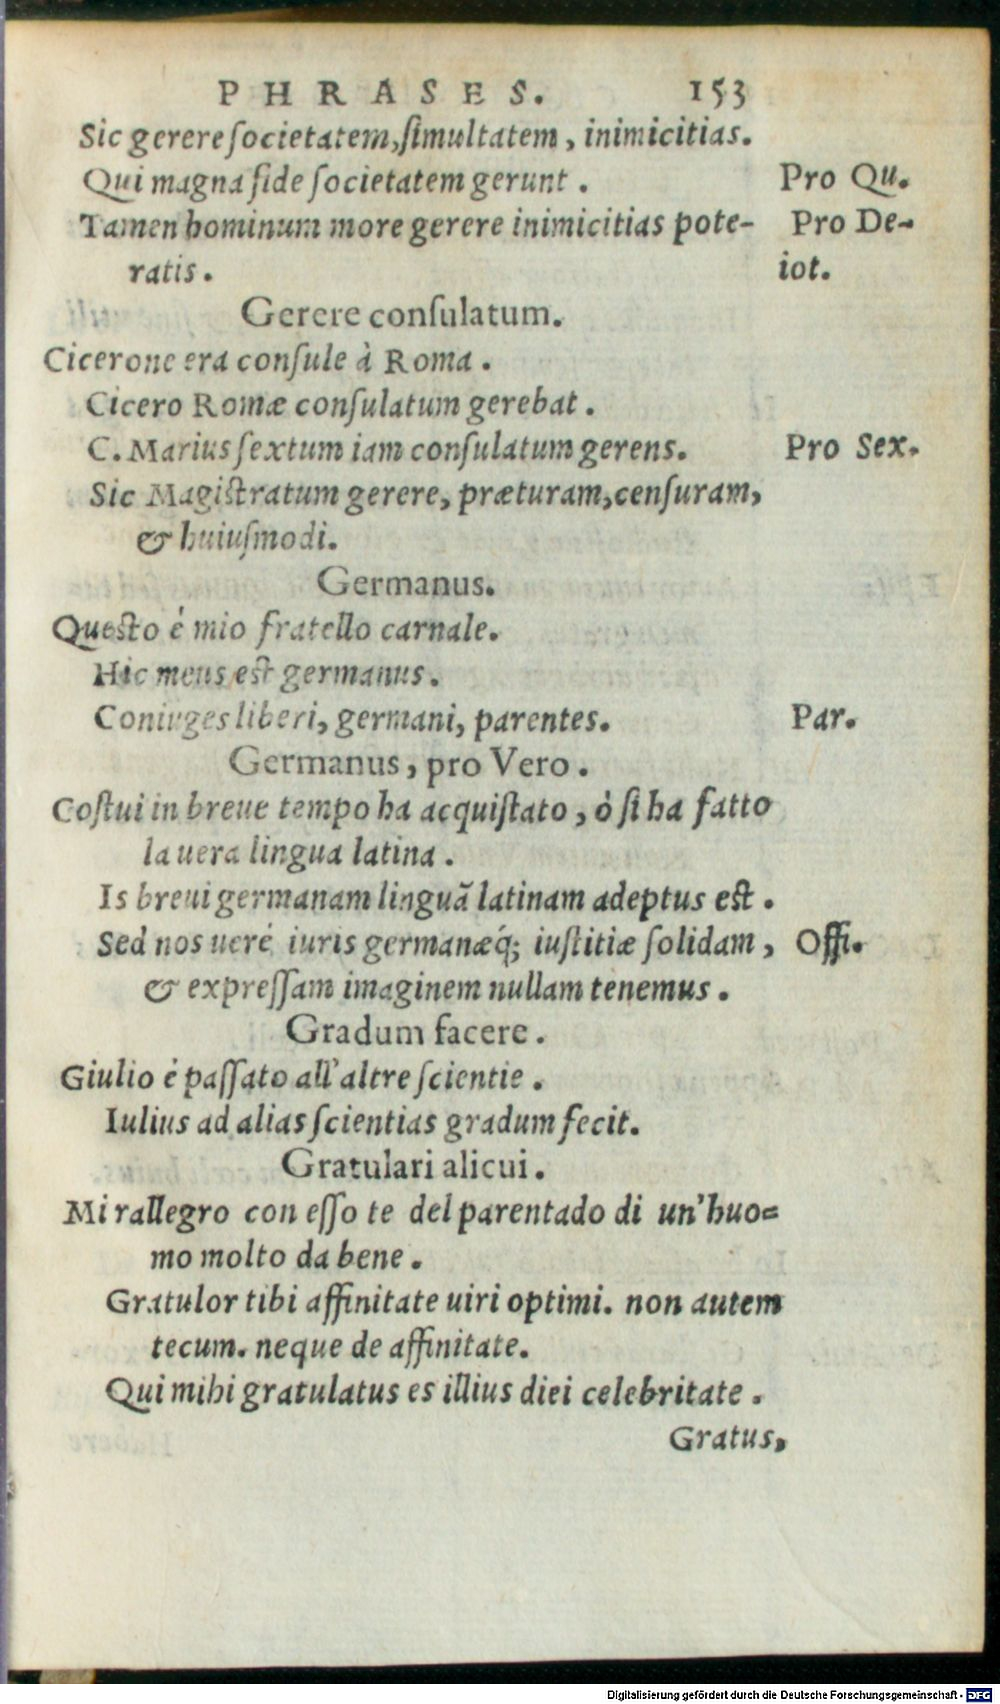 PHRASES. 153
Sic gerere ſocietatem,ſimultatem, inimicitias.
Qui magna fide ſocietatem gerunt. Pro Qu.
Tamen hominum more gerere inimicitias pote- Pro De-
ratis. iot.
Gerere conſulatum.
Cicerone era conſule à Roma.
Cicero Romæ conſulatum gerebat.
C. Marius ſextum iam conſulatum gerens. Pro Sex.
Sic Magiſtratum gerere, præturam,cenſuram,
& huiuſmodi.
Germanus.
Queſto é mio fratello carnale.
Hic meus eſt germanus.
Coniuges liberi, germani, parentes. Par.
Germanus, pro Vero.
Coſtui in breue tempo ha acquiſtato, ò ſi ha fatto
la uera lingua latina.
Is breui germanam linguã latinam adeptus eſt.
Sed nos ueré iuris germanæq́; iuſtitiæ ſolidam, Offi.
& expreſſam imaginem nullam tenemus.
Gradum facere.
Giulio é paſſato all'altre ſcientie.
Iulius ad alias ſcientias gradum fecit.
Gratulari alicui.
Mi rallegro con eſſo te del parentado di un'huo=
mo molto da bene.
Gratulor tibi affinitate uiri optimi. non autem
tecum. neque de affinitate.
Qui mihi gratulatus es illius diei celebritate.
Gratus,
Digitalisierung gefördert durch die Deutsche Forschungsgemeinschaft - DFG